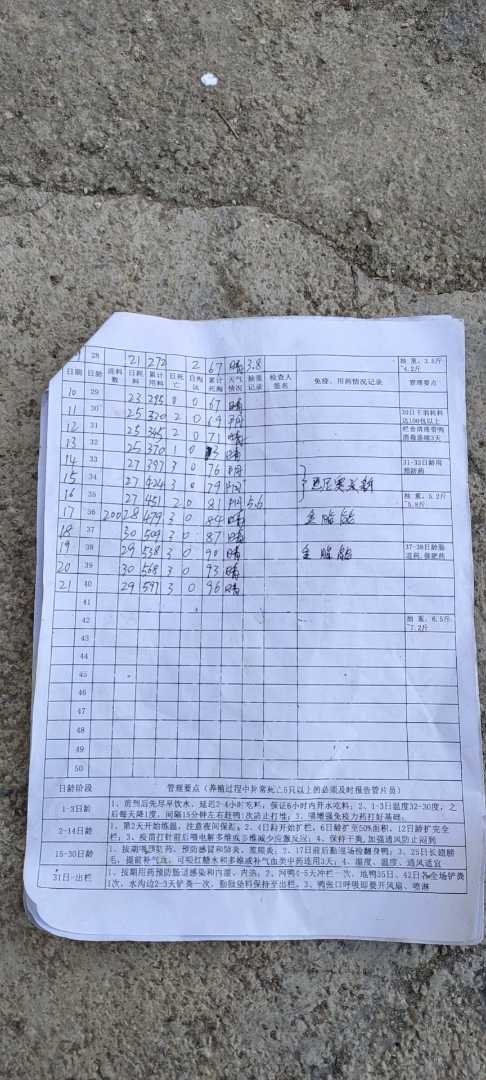 28 21 272 2 67 晴 3.8 抽重:3.8斤~4.2斤
日期 日龄 进料数 日耗料 累计用料 日死亡 日淘汰 累计死淘 天气情况 抽重记录 检查人签名 免疫、用药情况记录 管理要点
10 29 23 295 0 0 67 晴
11 30 25 320 2 0 69 阴 30日千羽耗料达100包以上
12 31 25 345 2 0 71 晴
13 32 25 370 1 0 晴
14 33 27 397 3 0 76 阴 31-33日龄用预防药
15 34 27 424 3 0 79
16 35 27 451 2 0 81 阴 5.6 抽重:5.2斤~5.8斤
17 36 200 28 479 3 0 84 晴
18 37 30 509 3 0 87 晴
19 38 29 538 3 0 90 晴 37-38日龄肠道药、保肥药
20 39 30 568 3 0 93 晴
21 40 29 597 3 0 96 晴
41
42 抽重:6.5斤~7.2斤
43
44
45
46
47
48
49
50
日龄阶段 管理要点(养殖过程中异常死亡5只以上的必须及时报告管片员)
1-3日龄 1、前列后先尽早饮水,延迟2-4小时吃料,保证6小时内开水吃料;2、1-3日温度32-30度,之后每天降1度,间隔15分钟左右赶鸭1次防止打堆;3、增强免疫力药打好基础。
2-14日龄 1、第2天开始练温,注意夜间保温;2、4日龄开始扩栏,6日龄扩至50%面积,12日龄扩完全栏;3、疫苗打针前后喂电解多维或多维减少应激反应;4、保持干爽,加强通风防止闷到
15-30日龄 1、按期预防药、预防感冒和肺炎、浆膜炎;2、17日前后勤巡现场检翻身鸭;3、25日长翅膀毛,提前补气血,可喂红糖水和多维或补气血类中药适用3天;4、湿度、温度、通风适宜
31日-出栏 1、按期用药预防肠道感染和内湿、内热;2、网鸭4-5天冲栏一次,地鸭35日、42日各全场铲粪1次,水沟边2-3天铲粪一次,勤撒垫料保持至出栏。3、鸭张口呼吸即要开风扇、喷淋